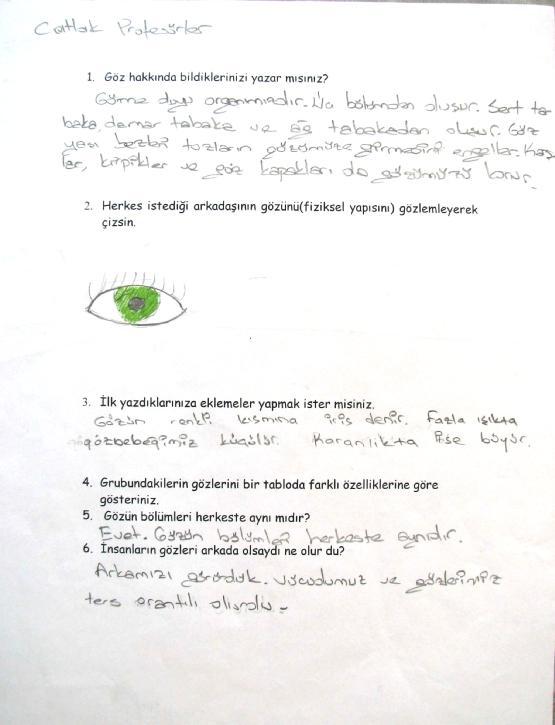 Çatlak Profesörler
1. Göz hakkında bildiklerinizi yazar mısınız?
Görme duyu organımızdır. bölümden oluşur. Sert ta-
baka, damar tabaka ve ağ tabakadan oluşur. Göz
yaşı bezleri tozların gözümüze girmesini engeller. Kaş
lar, kirpikler ve göz kapakları da gözümüzü korur.
2. Herkes istediği arkadaşının gözünü(fiziksel yapısını) gözlemleyerek
çizsin.
3. İlk yazdıklarınıza eklemeler yapmak ister misiniz.
Gözün renkli kısmına iris denir. Fazla ışıkta
gözbebeğimiz küçülür. Karanlıkta ise büyür.
4. Grubundakilerin gözlerini bir tabloda farklı özelliklerine göre
gösteriniz.
5. Gözün bölümleri herkeste aynı mıdır?
Evet. Gözün bölümleri herkeste aynıdır.
6. İnsanların gözleri arkada olsaydı ne olur du?
Arkamızı görürdük. Vücudumuz ve gözlerimiz
ters orantılı olurdu.